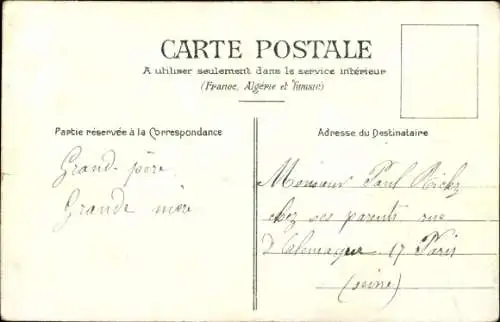 CARTE POSTALE
A utiliser seulement dans le service intérieur
(France, Algérie et Tunisie)
Partie réservée à la Correspondance
Adresse du Destinataire
Grand-père
Grande mère
Monsieur Paul
chez ses parents rue
d'Alemagne 17 Paris
(seine)